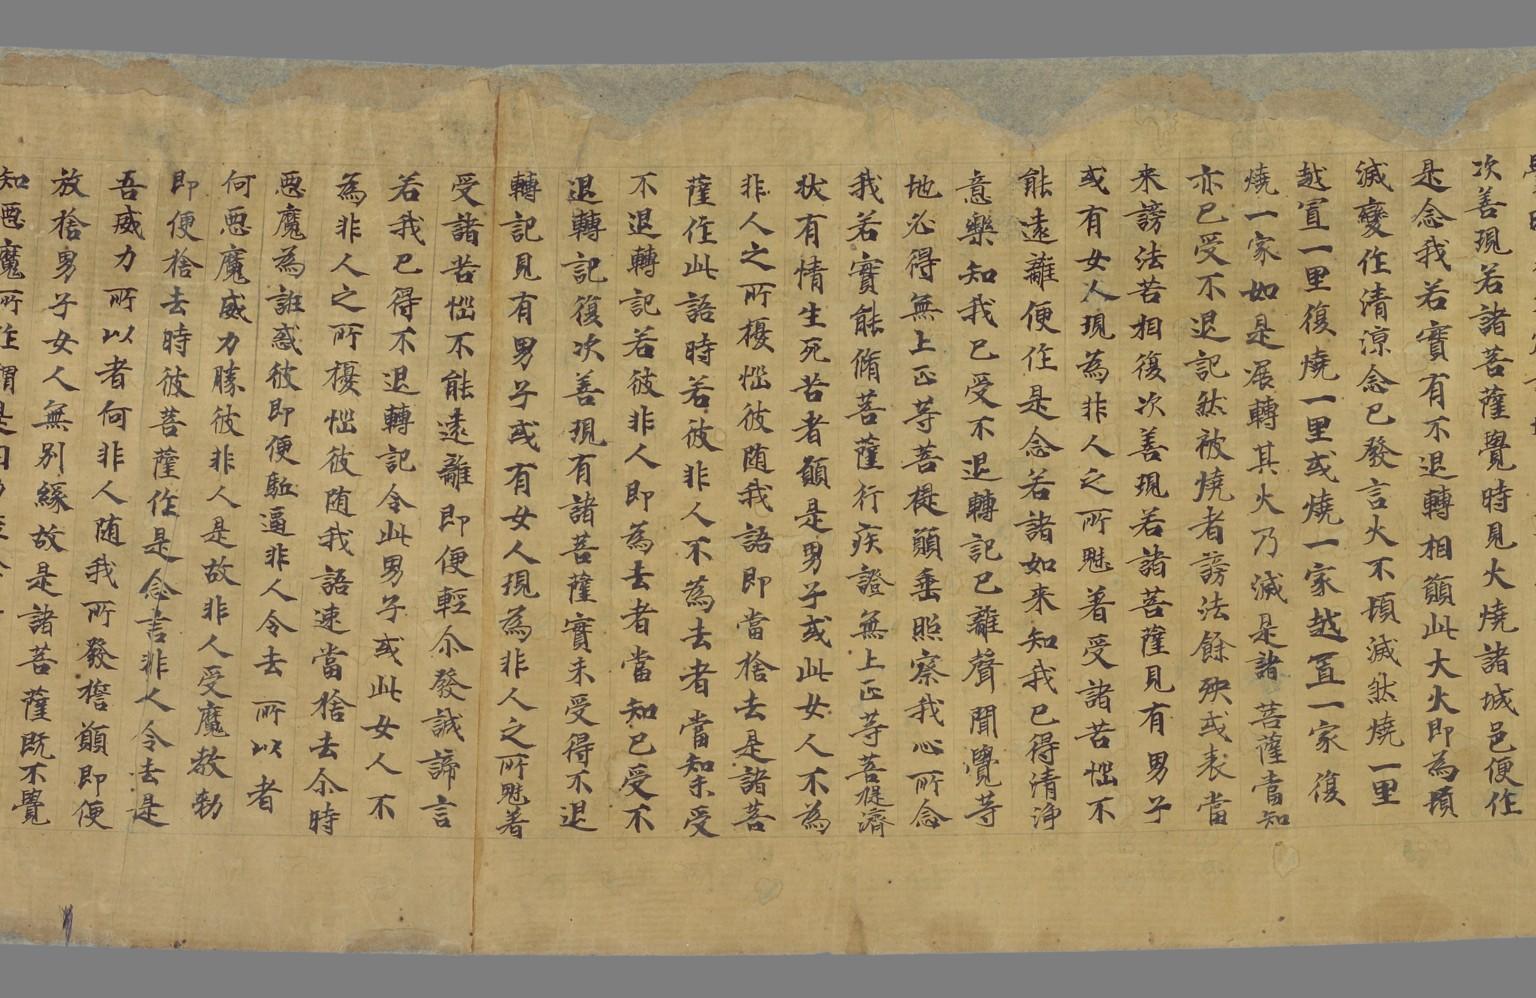 次善現若諸菩薩覺時見火燒諸城邑便作
是念我若實有不退轉相願此大火即為頓
滅變作清涼念已發言火不頓滅然燒一里
越置一里復燒一里或燒一家越置一家復
燒一家如是展轉其火乃滅是諸菩薩當知
亦已受不退記然被燒者謗法餘殃或表當
来謗法苦相復次善現若諸菩薩見有男子
或有女人現為非人之所魅著受諸苦惱不
能遠離便作是念若諸如来知我已得清淨
意樂知我已受不退轉記已離聲聞覺等
地必得無上正等菩提願垂照察我心所念
我若實能脩菩薩行疾證無上正等菩提濟
拔有情生死苦者願是男子或此女人不為
非人之所擾惱彼随我語即當捨去是諸菩
薩作此語時若彼非人不為去者當知未受
不退轉記若彼非人即為去者當知已受不
退轉記復次善現有諸菩薩實未受得不退
轉記見有男子或有女人現為非人之所魅著
受諸苦惱不能遠離即便輕尒發誠諦言
若我已得不退轉記令此男子或此女人不
為非人之所擾惱彼随我語速當捨去尒時
惡魔為誑惑彼即便駈逼非人令去所以者
何惡魔威力勝彼非人是故非人受魔教勑
即便捨去時彼菩薩作是念言非人令去是
吾威力所以者何非人随我所發擔願即便
放捨男子女人無別緣故是諸菩薩既不覺
知惡魔所作謂是